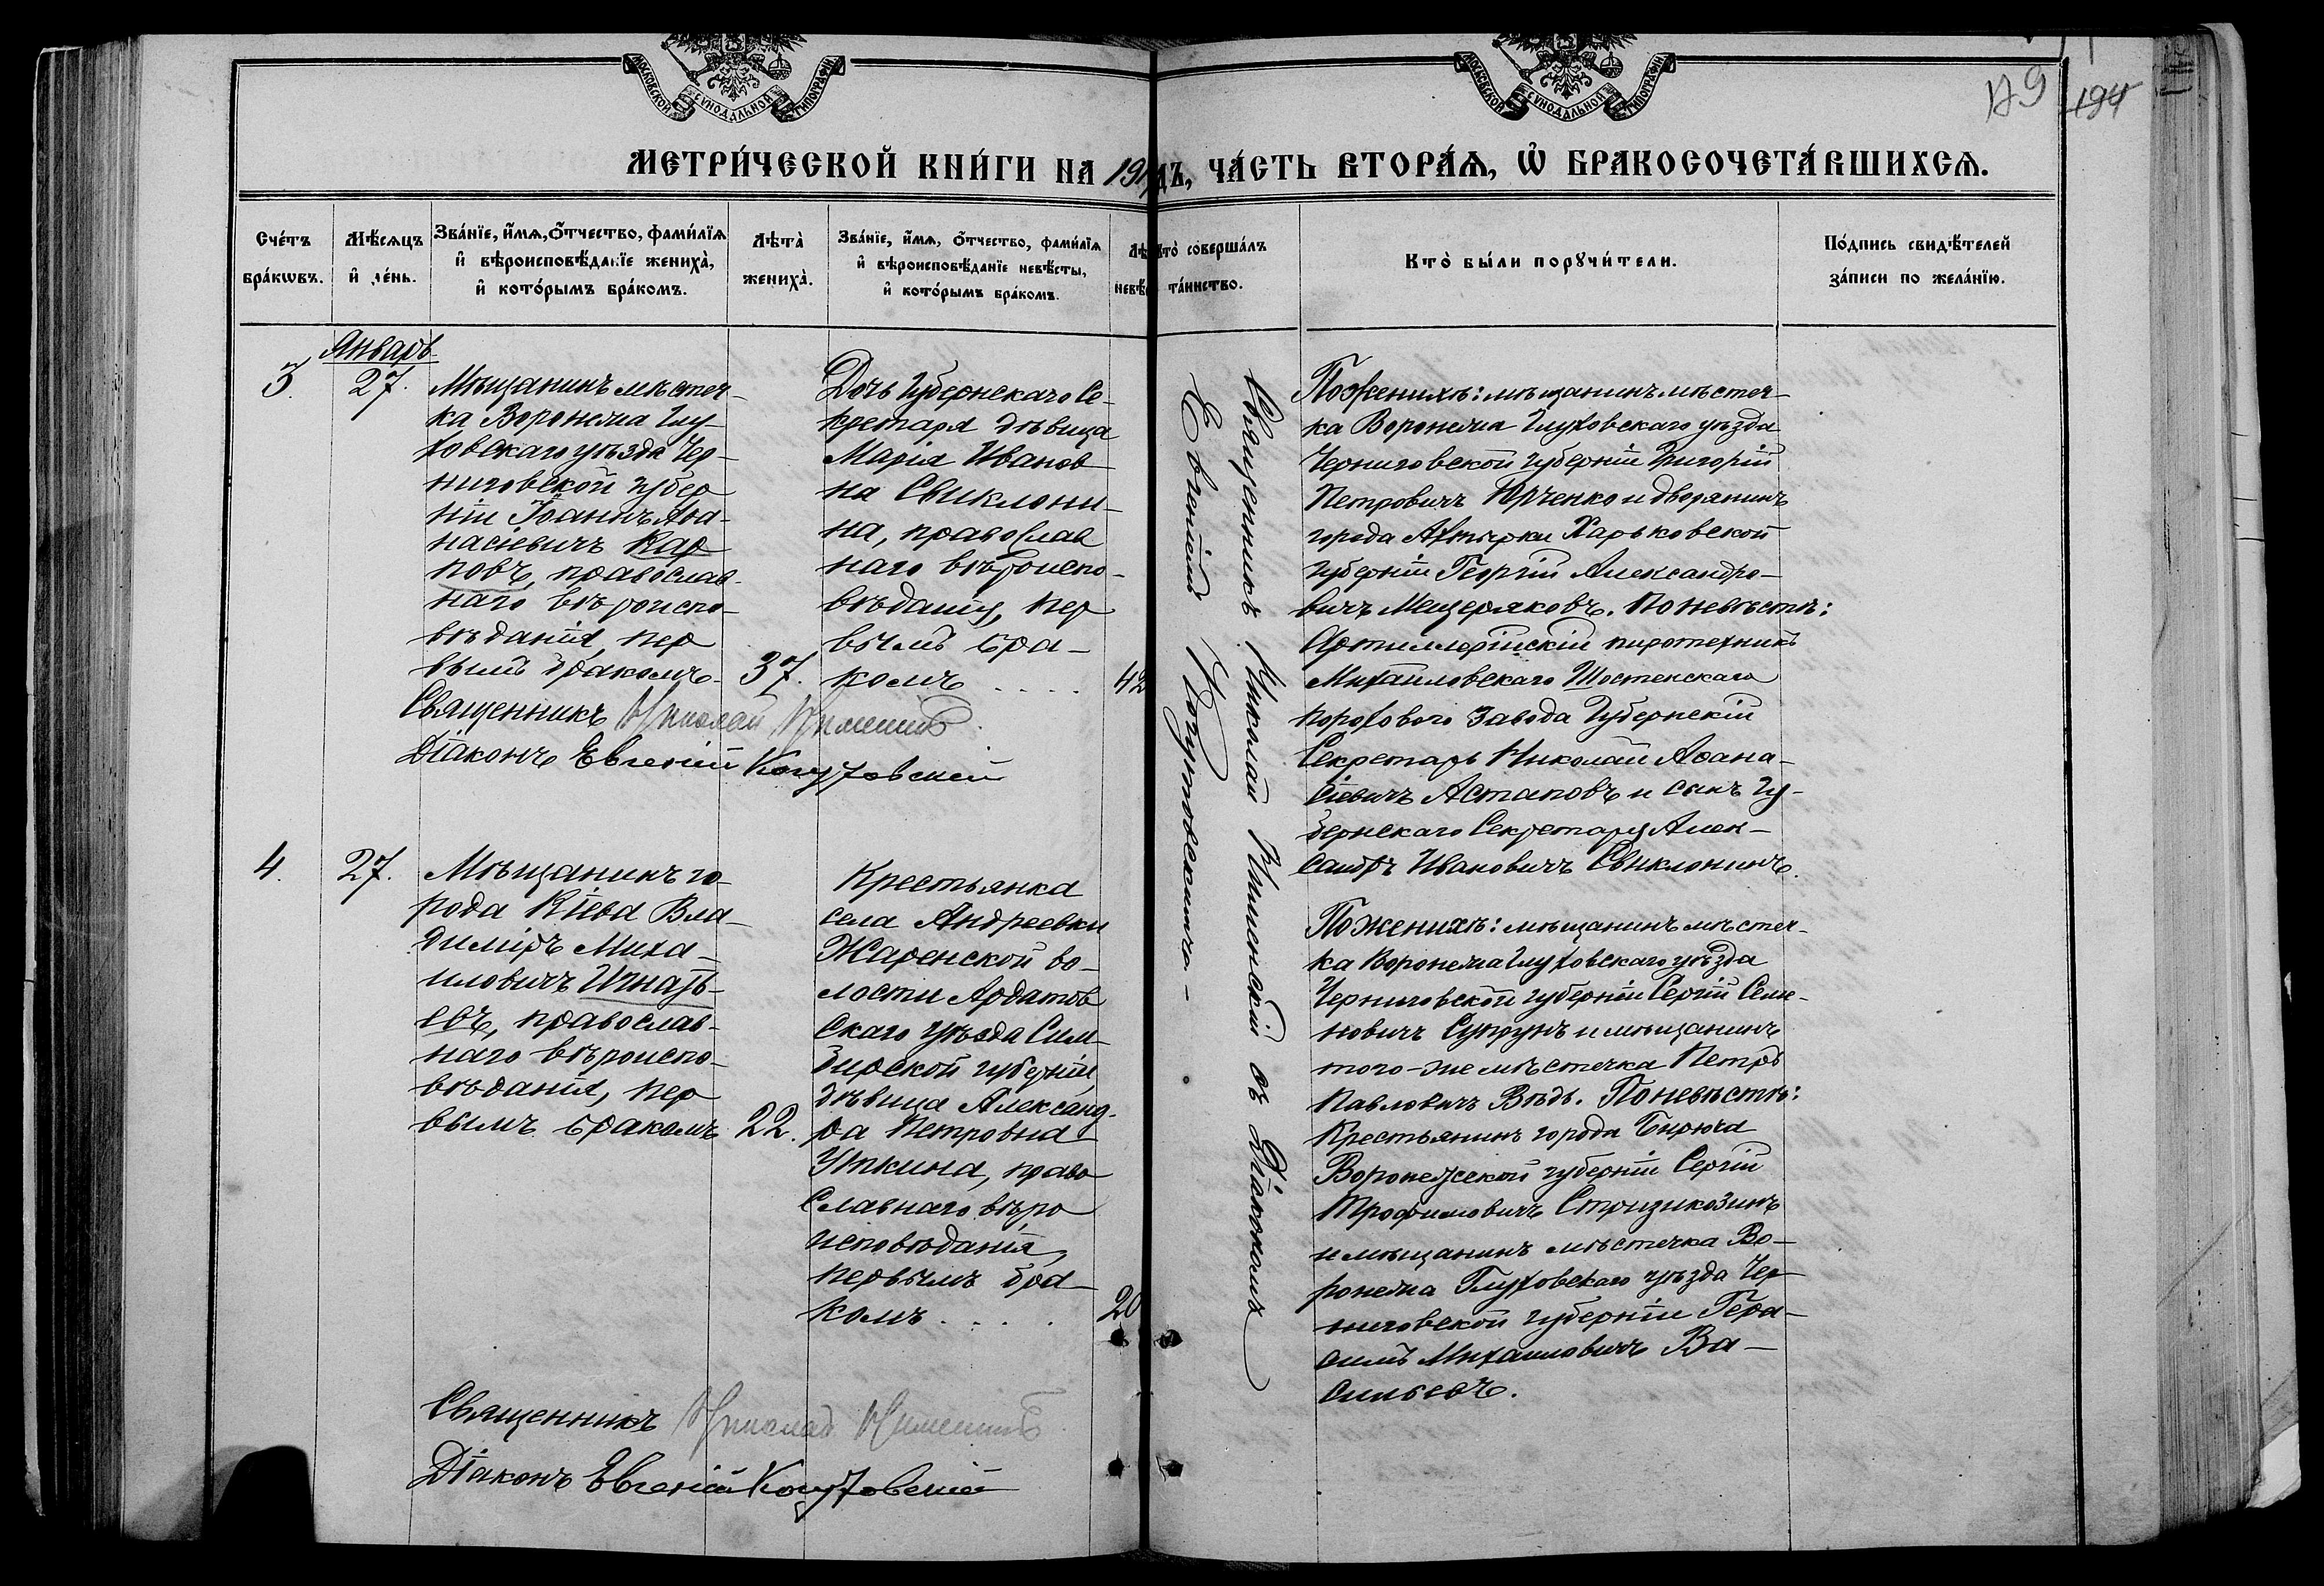 МОСКОВСКОЙ СѴНОДАЛЬНОЙ ТИПОГРАФІИ
МОСКОВСКОЙ СѴНОДАЛЬНОЙ ТИПОГРАФІИ
194
МЕТРИ́ЧЕСКОЙ КНИ́ГИ НА 191
дъ, ЧА́СТЬ ВТОРА́Ѧ, Ѽ БРАКОСОЧЕТА́ВШИХСѦ.
Сче́тъ бра́кωвъ.
Мѣ́сѧцъ и҆ де́нь.
Зва́нїе, и҆́мѧ, ѻ҆́тчество, фами́лїѧ
и҆ вѣроисповѣ́данїе жениха̀,
и҆ кото́рымъ бра́комъ.
Лѣта̀ жениха̀.
Зва́нїе, и҆́мѧ, ѻ҆́тчество, фами́лїѧ
и҆ вѣроисповѣ́данїе невѣ́сты,
и҆ кото́рымъ бра́комъ.
Лѣ
невѣ́с
Кто̀ соверша́лъ
та́инство.
Кто̀ бы́ли порꙋчи́тели.
По́дпись свидѣ́телей
за́писи по жела́нїю.
Январь
3. 27.
Мѣщанинъ мѣстеч-
ка Воронежа Глу-
ховскаго уѣзда Чер-
ниговской губер
ніи Іоаннъ Аѳа-
насіевичъ Кар
повъ, православ-
наго вѣроиспо-
вѣданія, пер
вымъ бракомъ.
37.
Дочь Губернскаго Се-
кретаря дѣвица
Марія Иванов-
на Свиклони-
на, православ
наго вѣроиспо-
вѣданія, пер
вымъ бра-
комъ . . . .
42
Священникъ Николай
Діаконъ Евгеній Когутовскій
Священникъ Николай Климскій съ Діакономъ
Евгеніемъ Когутовскимъ.-
По женихѣ: мѣщанинъ мѣстеч-
ка Воронежа Глуховскаго уѣзда
Черниговской губерніи Григорій
Петровичъ Юрченко и дворянинъ
города Ахтырки Харьковской
губерніи Георгій Александро-
вичъ Мещеряковъ. По невѣстѣ:
Артиллерійскій пиротехникъ
Михайловскаго Шостенскаго
порохового завода Губернскій
Секретарь Николай Аѳана-
сіевичъ Астаповъ и сынъ Гу-
бернскаго Секретаря Алек-
сандръ Ивановичъ Свиклонинъ.
4. 27.
Мѣщанинъ го-
рода Кіева Вла-
диміръ Миха-
иловичъ Игнать-
евъ, православ-
наго вѣроиспо-
вѣданія, пер
вымъ бракомъ
22.
Крестьянка
села Андреевки
Жаренской во-
лости Ардатов
скаго уѣзда Сим-
бирской губерніи
дѣвица Александ-
ра Петровна
Уткина, право
славнаго вѣро
исповѣданія,
первымъ бра-
комъ . . . .
20
По женихѣ: мѣщанинъ мѣстеч-
ка Воронежа Глуховскаго уѣзда
Черниговской губерніи Сергій Семе-
новичъ Супрунъ и мѣщанинъ
того-же мѣстечка Петръ
Павловичъ Вѣдь. По невѣстѣ:
Крестьянинъ города Бирюча
Воронежской губерніи Сергій
Трофимовичъ Стризикозинъ
и мѣщанинъ мѣстечка Во-
ронежа Глуховскаго уѣзда Чер
ниговской губерніи Гера-
симъ Михайловичъ Ва-
сильевъ.
Священникъ Николай
Діаконъ Евгеній Когутовскій